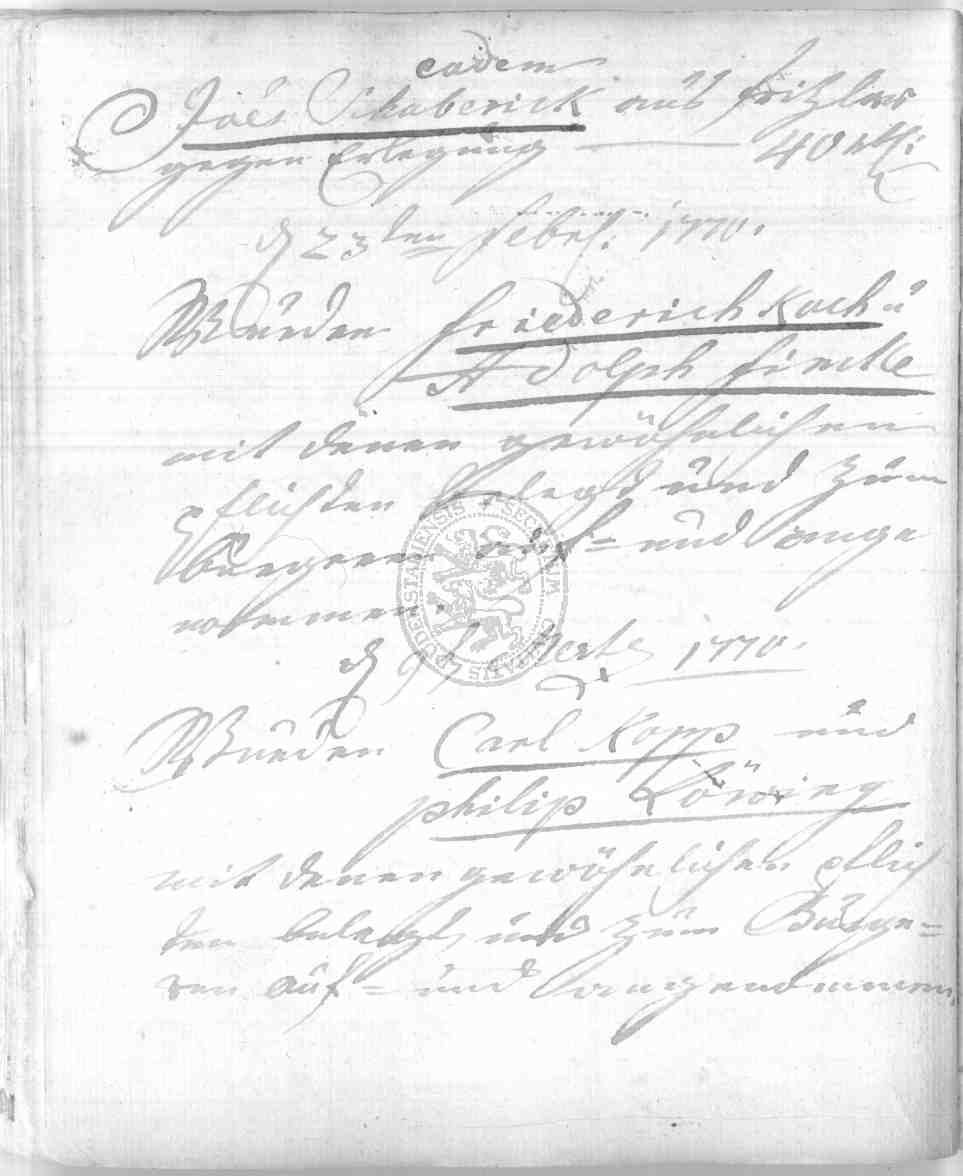 eodem
Joēs Schaberick aus fritzlar
gegen Erlegung — 40 rtl:
d 23ten febr: 1770.
Wurden friederich Koch u
Adolph fincke
mit denen gewöhnlichen
pflichten belegt und zum
burgeren auf= und ange
nohmmen.
d 9t Mertz 1770.
Wurden Carl Kopp und
philip Löwing
mit denen gewöhnlichen pflich
ten belegt, und zum Bürge=
ren auf= und angenommen.